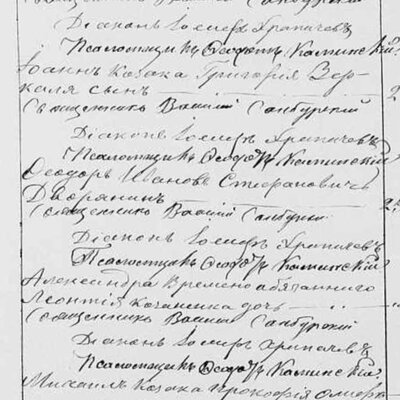 Священникъ Василій Самбурскій
Діаконъ Іосифъ Храпачевъ
Псаломщикъ Ѳеодотъ Каминскій
Іоаннъ козака Григорія Вер-
каля сынъ 2
Священникъ Василій Самбурскій
Діаконъ Іосифъ Храпачевъ
Псаломщикъ Каминскій
Ѳеодоръ Ивановъ Стефановичъ
Дворянинъ 2
Священникъ Василій Самбурскій
Діаконъ Іосифъ Храпачевъ
Псаломщикъ Каминскій
Александра Временообязаннаго
Леонтія Коченка дочь
Священникъ Василій Самбурскій
Діаконъ Іосифъ Храпачевъ
Псаломщикъ Каминскій
Михаилъ козака Прокофія